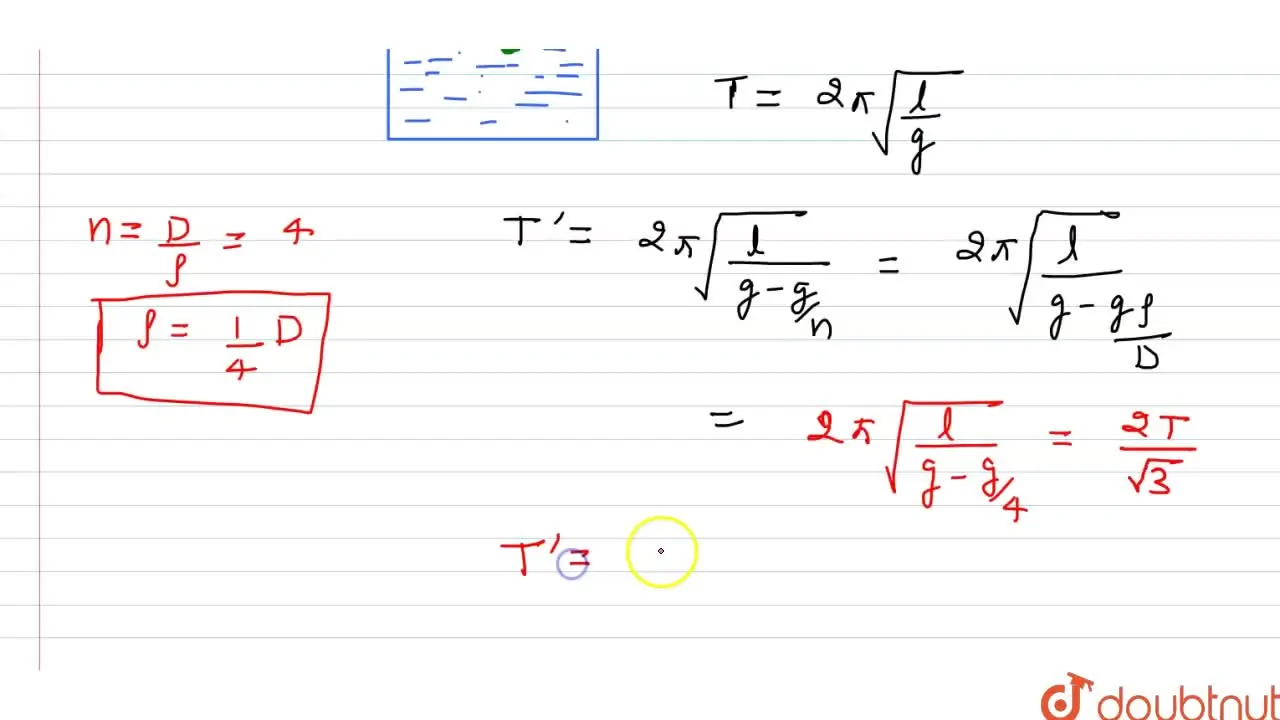 T = 2π√(l/g)
n = D/ρ = 4
T' = 2π√(l/(g - g/n)) = 2π√(l/(g - gρ/D))
ρ = 1/4 D
= 2π√(l/(g - g/4)) = 2T/√3
T' =
doubtnut